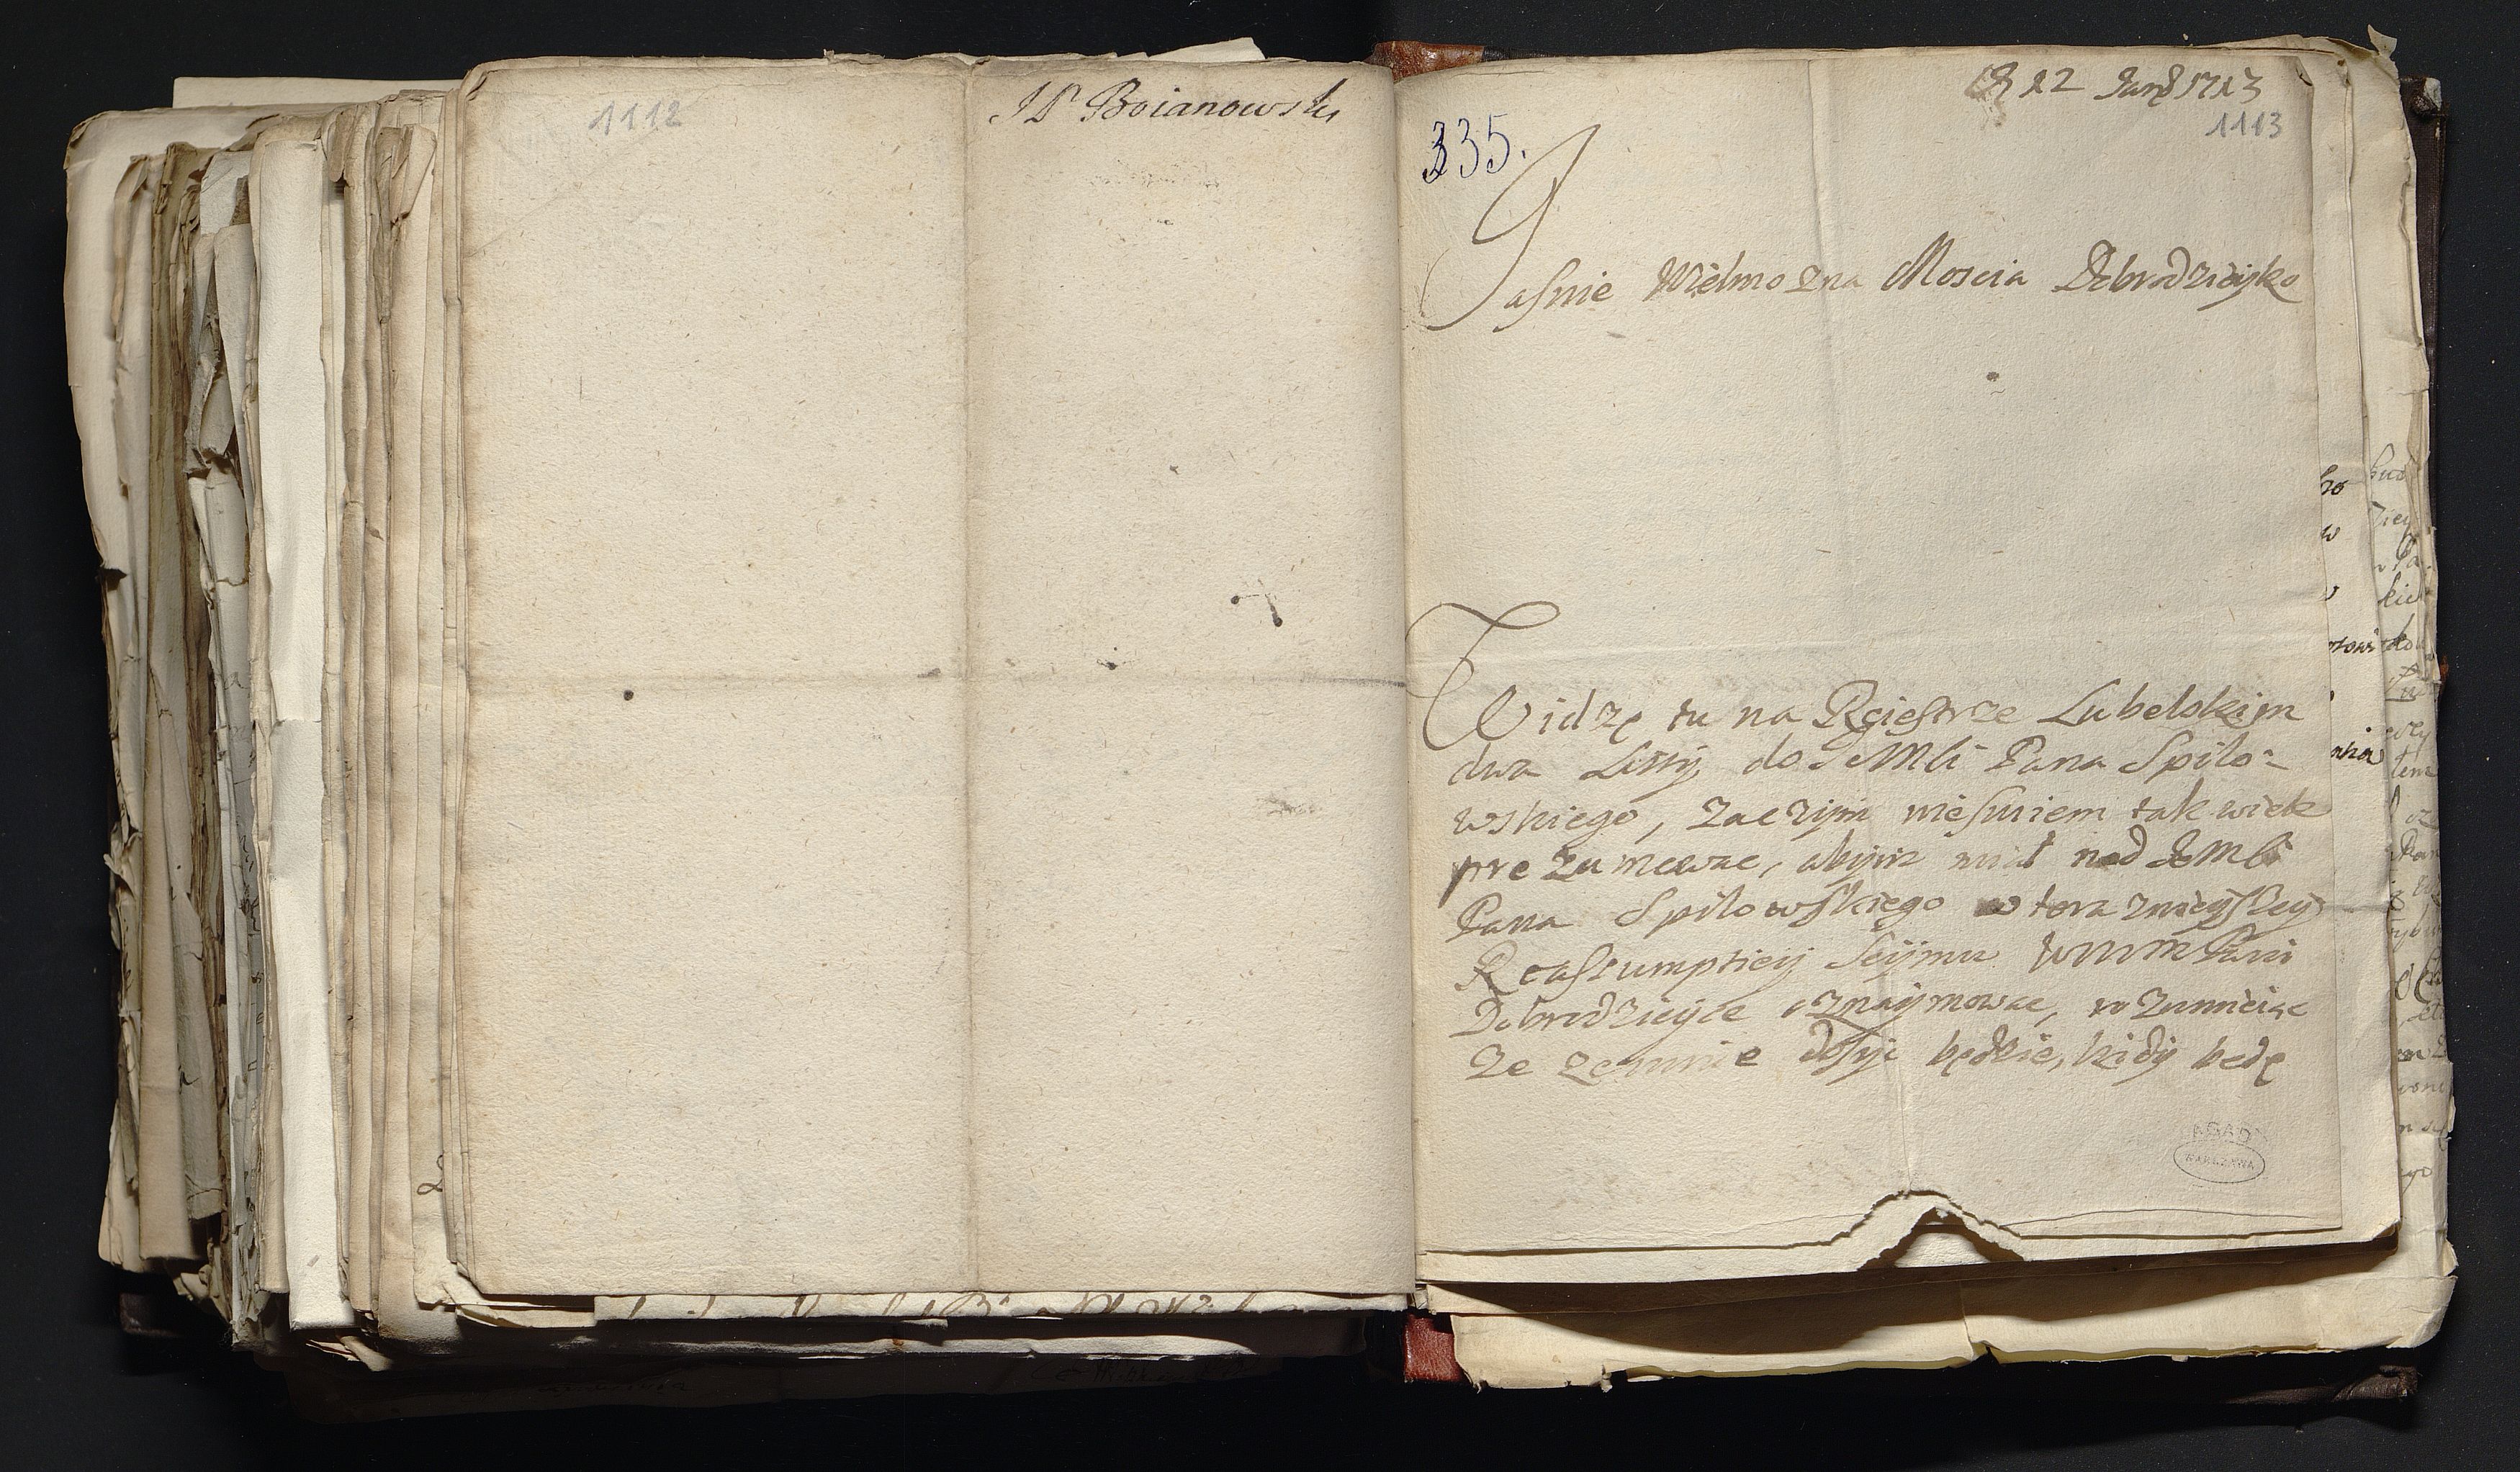 1112
JP Boianowski
12 Jan 1713
1113
335.
Jasnie Wielmozna Moscia Dobrodzieyko
Widzę tu na Regiestrze Lubelskim
dwa Listy do JeMści Pana Spiło=
wskiego, zaczym nieśmiem tak wiele
prezumowac, abym miał nad JeMści
Pana Spiłowskiego w teraznieyszey
Reassumptiey Seymu WMM Pani
Dobrodzieyce oznaymowac, rozumieiąc
ze zemnie dosyc będzie, kidy będę
AGAD
WARSZAWA